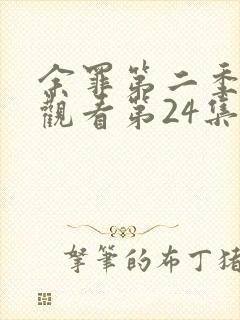 余罪第二季
觀看第24集
拏筆的布丁猪